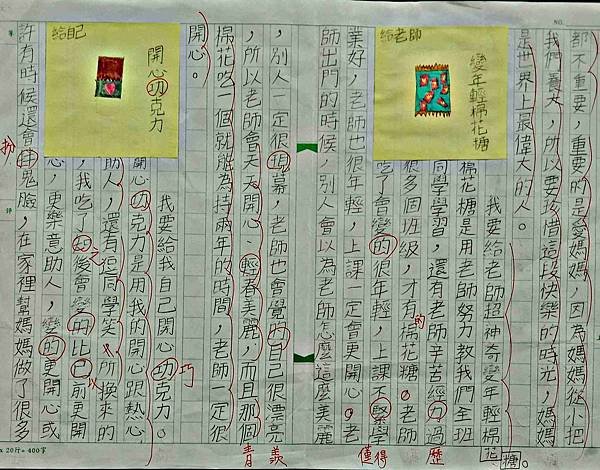 都不重要，重要的是愛媽媽，因為媽媽從小把
我們養大，所以要珍惜這段快樂的時光，媽媽
是世界上最偉大的人。
給老師
變年輕棉花糖
我要給老師超神奇變年輕棉花糖。
棉花糖是用老師努力教我們全班
同學學習，還有老師辛苦經力過
很多個班級，才有的棉花糖。老師
吃了會變的很年輕，上課不緊學
業好，老師也很年輕，上課一定會更開心。老
師出門的時候，別人會以為老師怎麼這麼美麗
，別人一定很項幕，老師也會覺的自己很漂亮
，所以老師會天天開心、輕春美麗，而且那個
棉花吃一個就能為持兩年的時間，老師一定很
開心。
給自己
開心功克力
我要給我自己開心功克力。
開心功克力是用我的開心跟熱心
助人，還有但同學笑，所換來的
，我吃了功後會變的比巴前更開
心，更樂意助人，變的更開心或
許有時候還會拌鬼臉，在家裡幫媽媽做了很多
歷
僅得
羨
青
巧
扮
x 20行= 400字
NO.